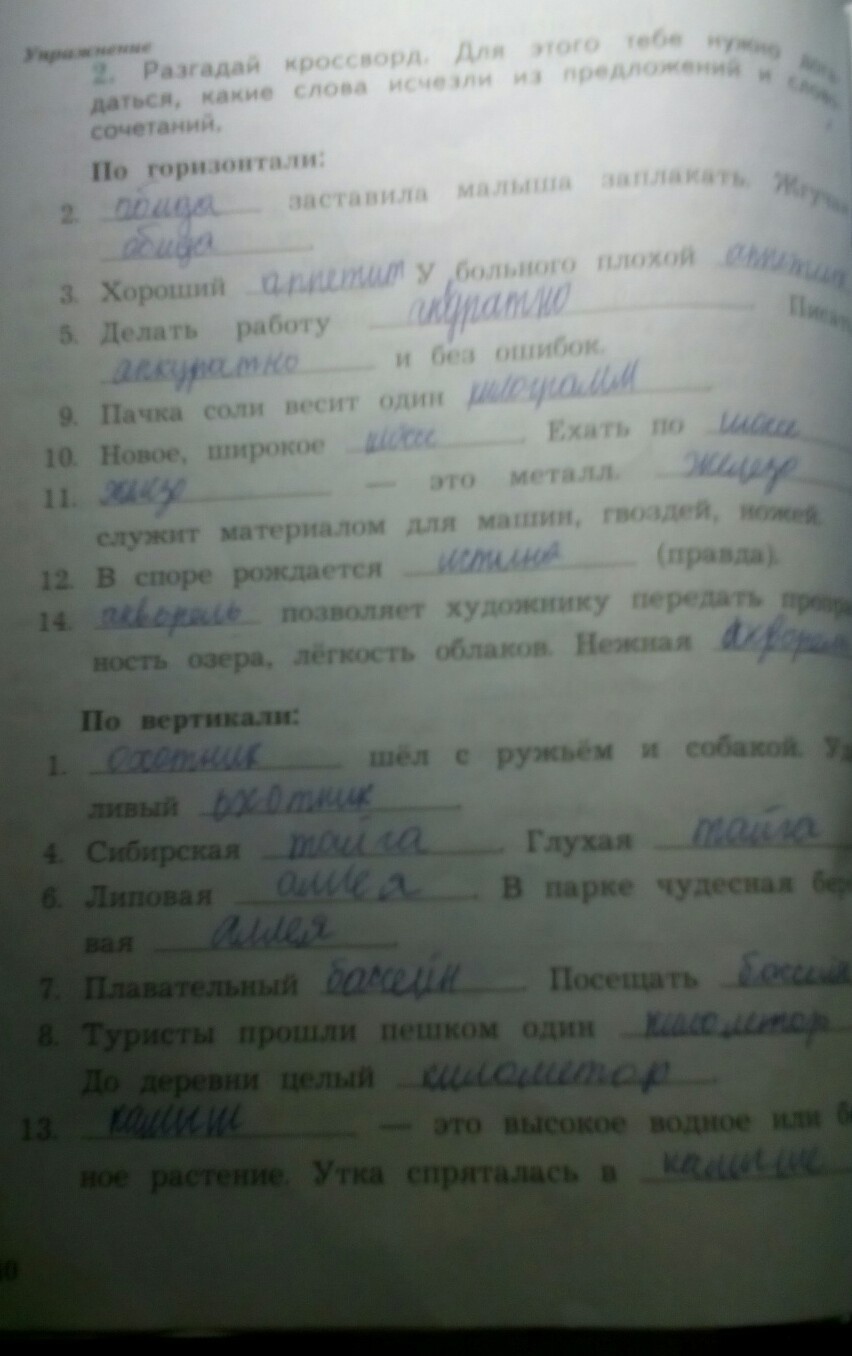 Упражнение
2. Разгадай кроссворд. Для этого тебе нужно дога
даться, какие слова исчезли из предложений и слово
сочетаний.
По горизонтали:
2. обида заставила малыша заплакать. Жгучая
обида
3. Хороший аппетит У больного плохой аппетит
5. Делать работу акуратно Писать
аккуратно и без ошибок.
9. Пачка соли весит один килограмм
10. Новое, широкое шоссе Ехать по шоссе
11. — это металл. железо
служит материалом для машин, гвоздей, ножей
12. В споре рождается истина (правда).
14. акворель позволяет художнику передать прозра
ность озера, лёгкость облаков. Нежная акворель
По вертикали:
1. охотник шёл с ружьём и собакой. Уд
ливый охотник
4. Сибирская тайга Глухая тайга
6. Липовая аллея. В парке чудесная бер
вая аллея
7. Плавательный бассейн. Посещать бассейн
8. Туристы прошли пешком один километор
До деревни целый километор.
13. камыш — это высокое водное или бо
ное растение. Утка спряталась в камыше